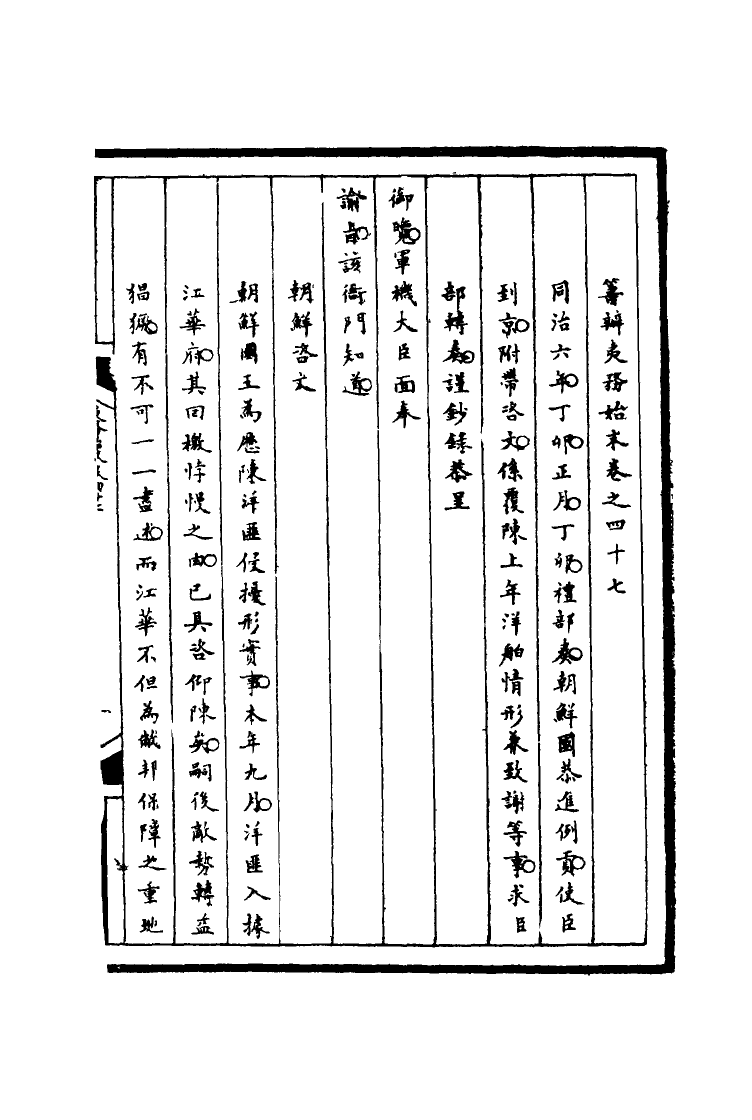 籌辦夷務始末卷之四十七
同治六年。丁卯正月。丁卯。禮部奏。朝鮮國恭進例貢。使臣
到京。附帶咨文。係覆陳上年洋舶情形兼致謝等事。求臣
部轉奏。謹鈔錄恭呈
御覽。軍機大臣面奉
諭旨。該衙門知道。
朝鮮咨文
朝鮮國王為歷陳洋匪侵擾形實事。本年九月。洋匪入據
江華府。其回檄悖慢之由。已具咨仰陳矣。嗣後敵勢轉益
猖獗。有不可一一盡述。而江華不但為敝邦保障之重地